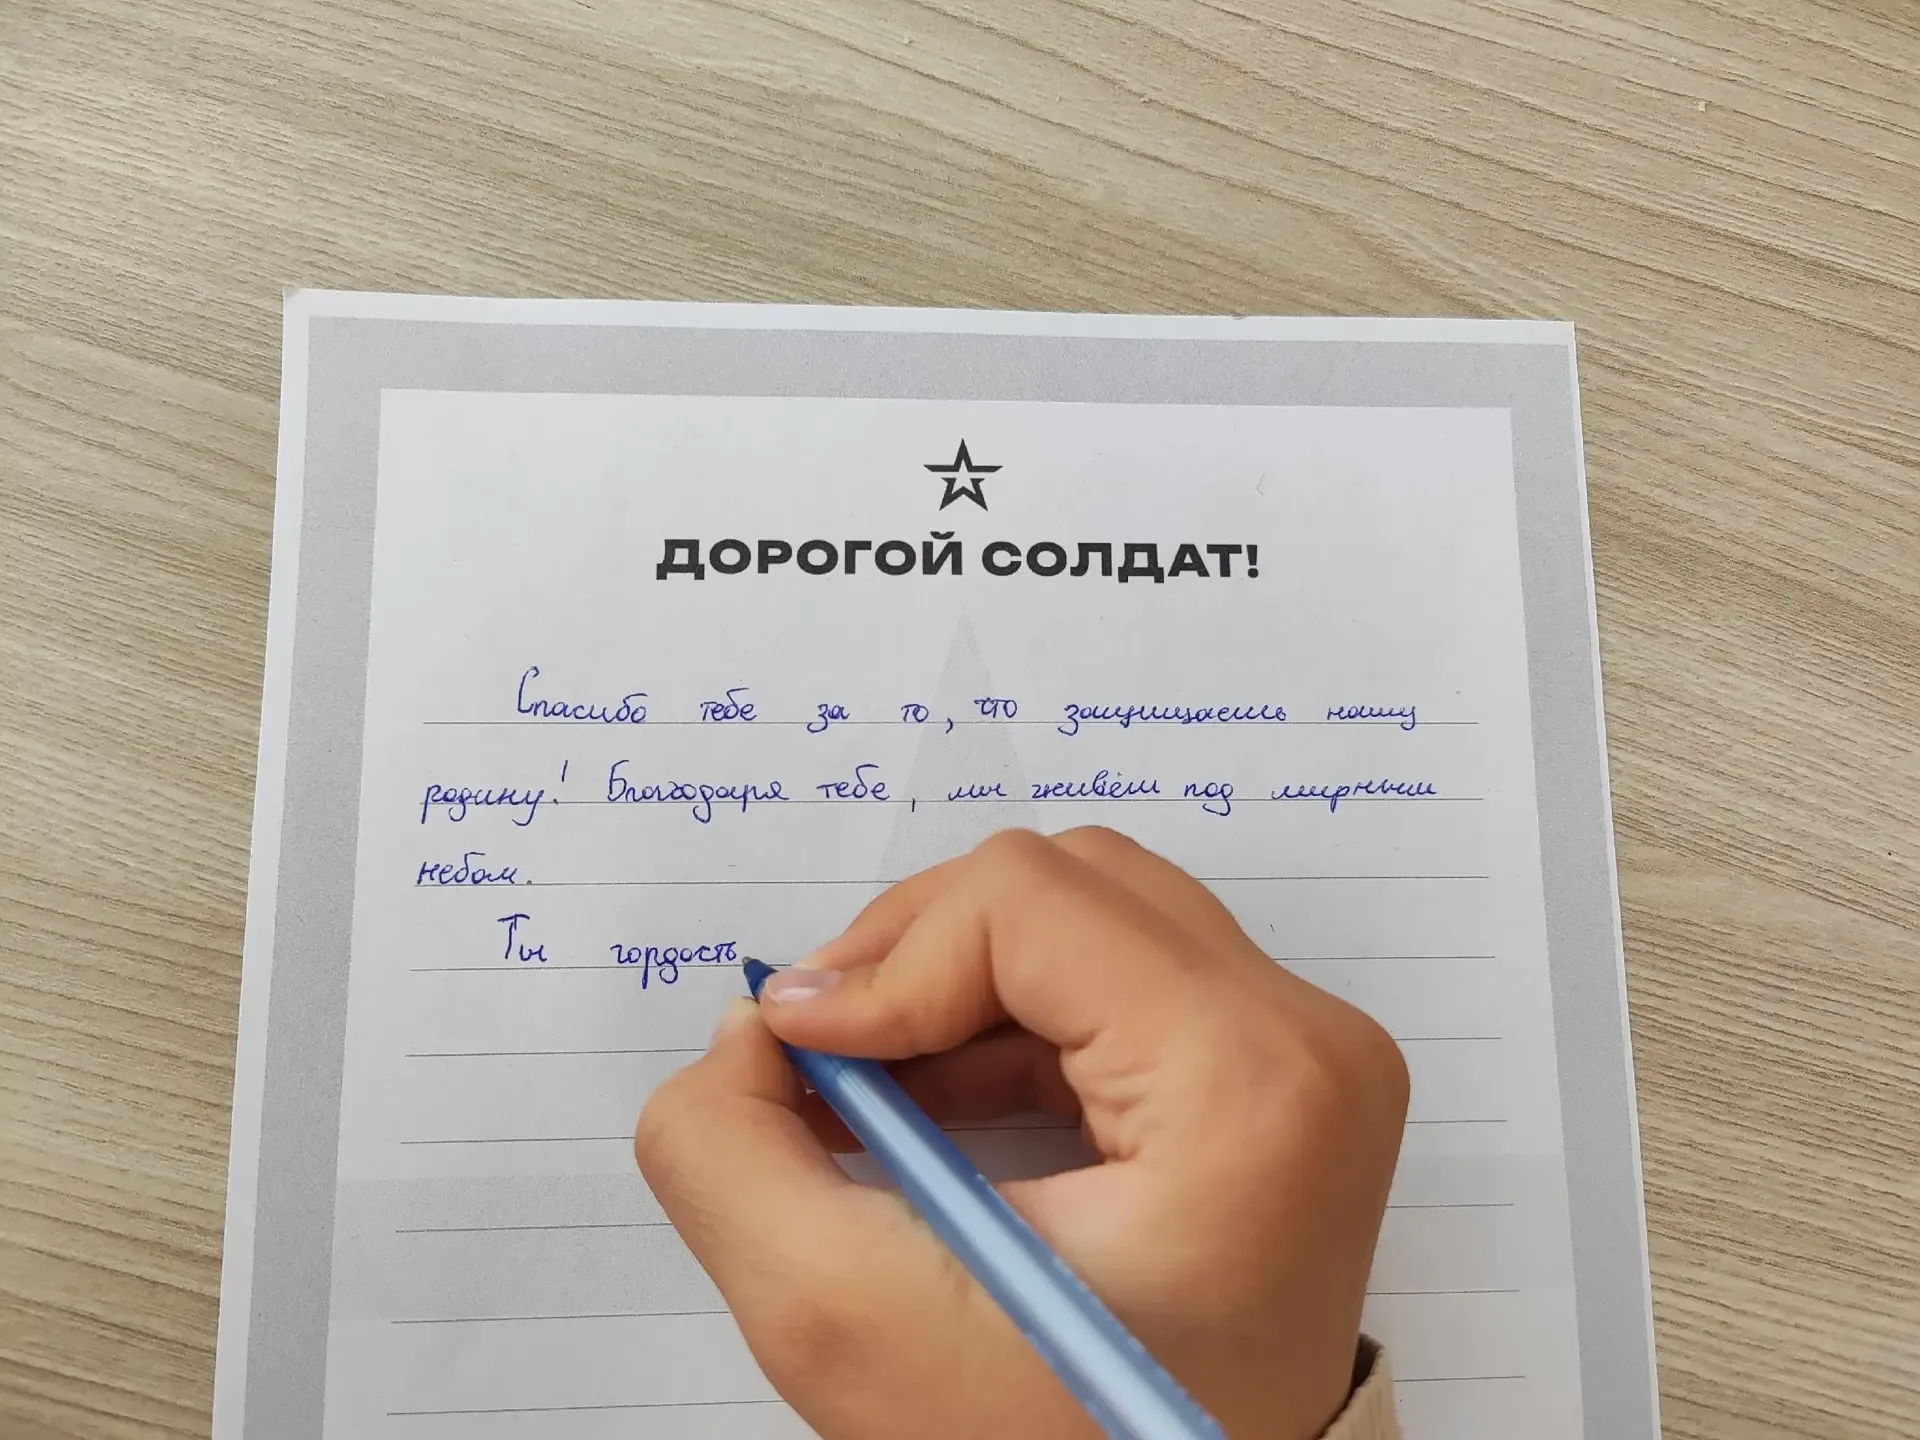 ДОРОГОЙ СОЛДАТ!
Спасибо тебе за то, что защищаешь нашу
родину! Благодаря тебе, мы живём под мирным
небом.
Ты гордость